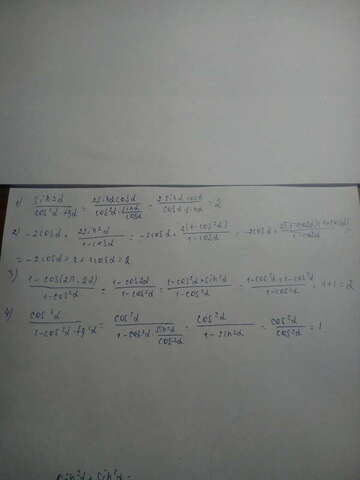 1) sin2α / cos²α·tgα = 2sinαcosα / cos²α·sinα/cosα = 2sinαcosα / cosα·sinα = 2
2) -2cosα + 2sin²α / 1-cosα = -2cosα + 2(1-cos²α) / 1-cosα = -2cosα + 2(1-cosα)(1+cosα) / 1-cosα
= -2cosα + 2 + 2cosα = 2
3) 1-cos(2π-2α) / 1-cos²α = 1-cos2α / 1-cos²α = 1-cos²α+sin²α / 1-cos²α = 1-cos²α+1-cos²α / 1-cos²α = 1+1=2
4) cos²α / 1-cos²α·tg²α = cos²α / 1-cos²α·sin²α/cos²α = cos²α / 1-sin²α = cos²α / cos²α = 1